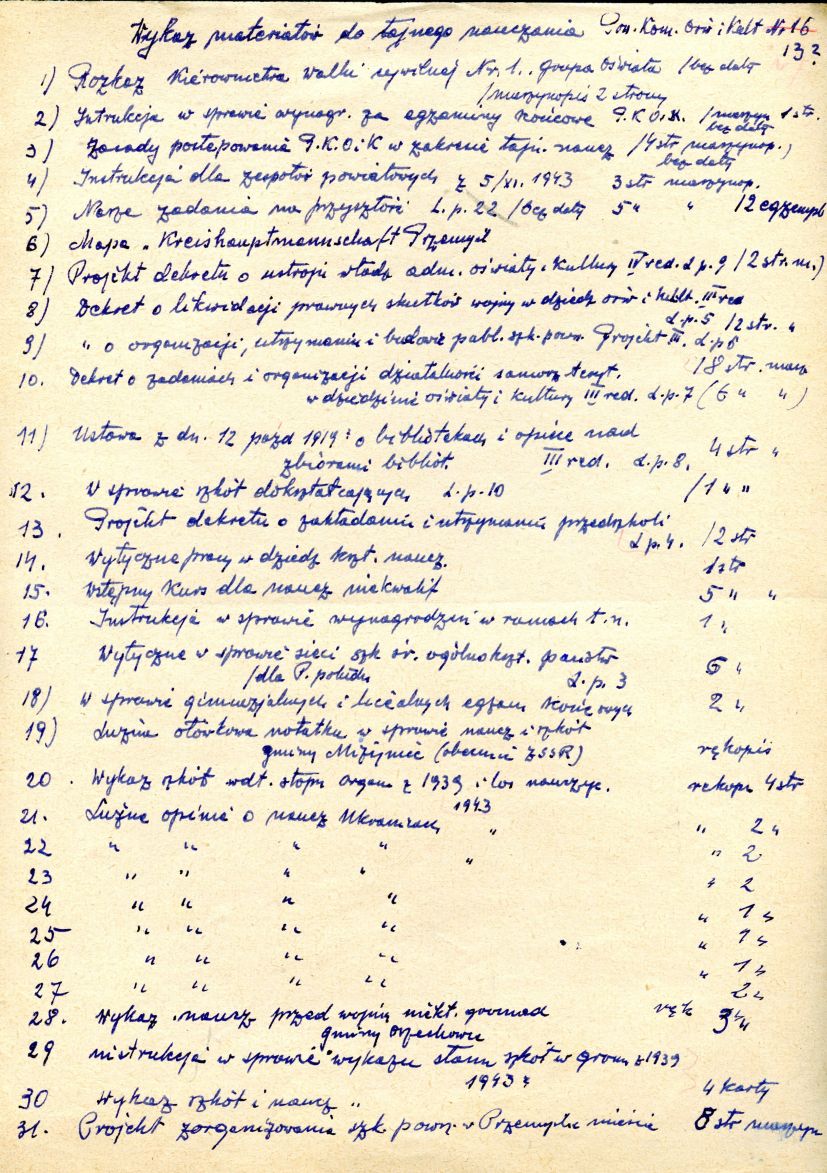 Wykaz materiałów do tajnego nauczania Pow. Kom. Ośw i Kult Nr 16
13?
1) Rozkaz Kierownictwa walki cywilnej Nr. 1. grupa oświata /bez daty
/maszynopis 2 strony
2) Intrukcja w sprawie wynagr. za egzaminy końcowe P.K.O.i.K. /maszyn 1 str.
bez daty
3) Zasady postępowania P.K.O i K w zakresie tajn. naucz /4 str maszynop.)
bez daty
4) Instrukcja dla zespołów powiatowych z 5/XI. 1943 3 str maszynop.
5) Nasze zadania na przyszłość L.p. 22 /bez daty 5 " " 12 egzempl
6) Mapa "Kreishauptmannschaft Przemyśl
7) Projekt dekretu o ustroju władz adm. oświaty i kultury IV red. L p. 9 /2 str. m.)
8) Dekret o likwidacji prawnych skutków wojny w dziedz ośw i kult. III red
L.p. 5 /2 str. "
9) " o organizacji, utrzymaniu i budowie publ. szk. pow. Projekt III. L.p 6
/8 str. masz
10. Dekret o zadaniach i organizacji działalności samorz. teryt.
w dziedzinie oświaty i kultury III red. L.p. 7 (6 " ")
11) Ustawa z dn. 12 paźd 1919 r o bibliotekach i opiece nad
zbiorami bibliot. III red. L.p. 8. 4 str "
12. W sprawie szkół dokształcających L.p. 10 /1 " "
13. Projekt dekretu o zakładaniu i utrzymaniu przedszkoli
L p. 4. /2 str
14. Wytyczne pracy w dziedz kszt. naucz. 1 str
15. Wstępny Kurs dla naucz niekwalif 5 " "
16. Instrukcja w sprawie wynagrodzeń w ramach t. n. 1 "
17 Wytyczne w sprawie sieci szk śr. ogólnokszt. państw
/dla P. L.p. 3 6 "
18) W sprawie gimnazjalnych i licealnych egzam końcowych 2 "
19) Luźna ołówkowa notatka w sprawie naucz i szkół
gminy Miżyniec (obecnie ZSSR) rękopis
20. Wykaz szkół wdł. stopn organ z 1939 i los nauczyc. rękopi 4 str
21. Luźne opinie o naucz Ukraincach 1943 " " 2 "
22 " " " " " " 2
23 " " " " " 2
24 " " " " " 1 "
25 " " " " " 1 "
26 " " " " " 1 "
27 " " " " 2 "
28. Wykaz naucz przed wojną niekt. gromad ręk 3 "
gminy Orzechowce
29 instrukcja w sprawie wykazu stanu szkół w grom z 1939
1943 r
30 Wykaz szkół i naucz " 4 karty
31. Projekt zorganizowania szk. pown. w Przemyślu mieście 8 str maszyn